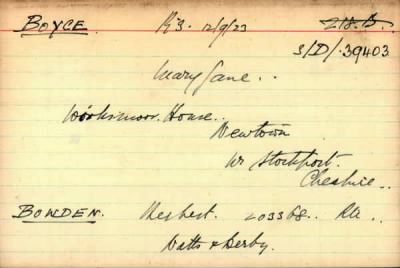 BOYCE. R/3. 12/9/23 218.B.
3/D/.39403
Mary Jane..
House..
Newtown
Nr Stockport.
Cheshire..
BOWDEN. Herbert. 203368.. Rtd.
Notts & Derby.